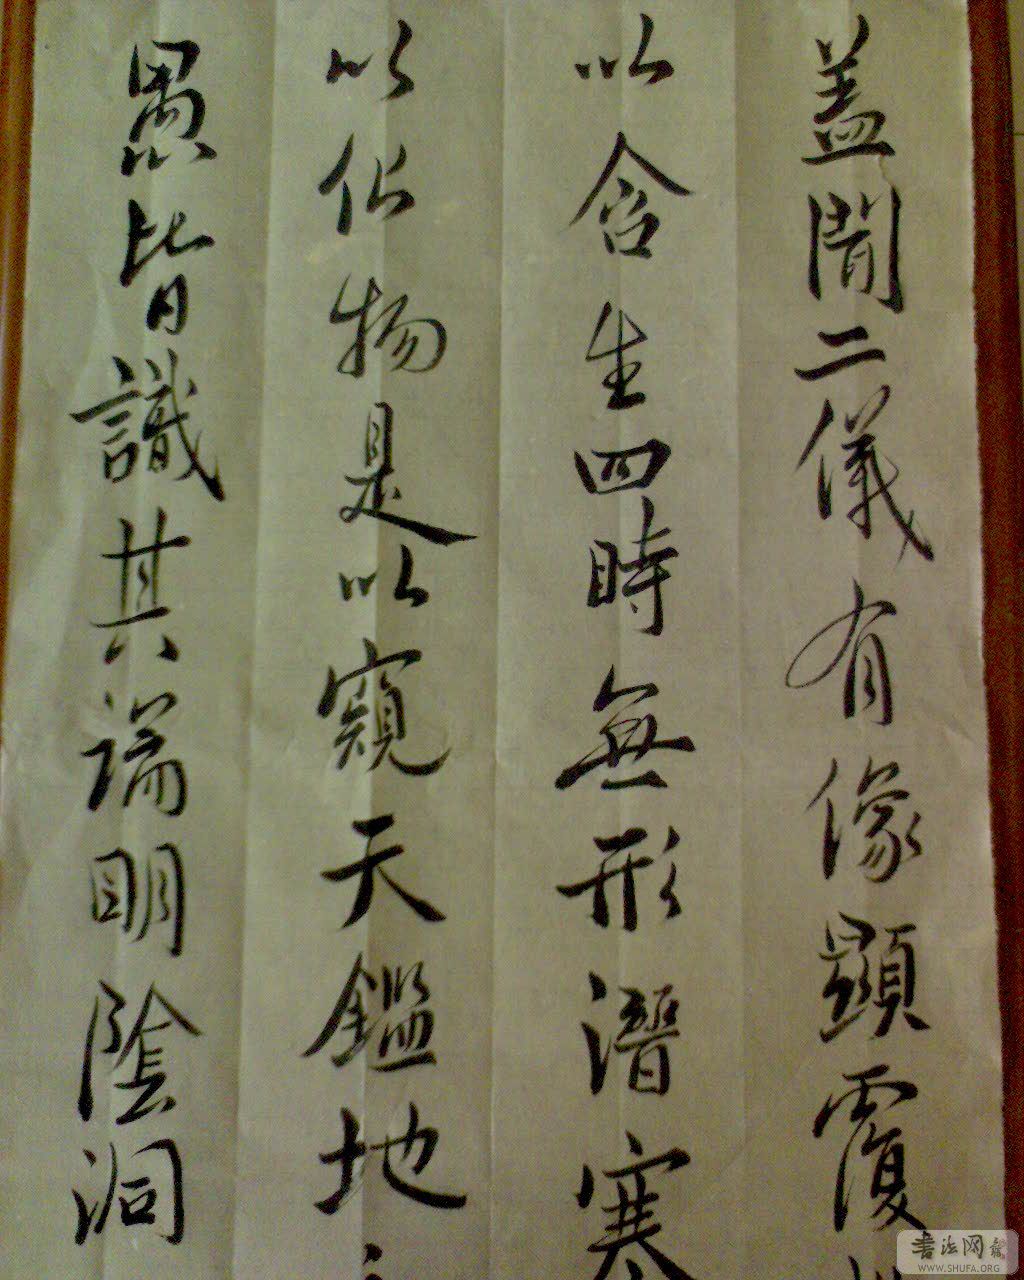 蓋聞二儀有像顯覆
以含生四時無形潛寒
以化物是以窺天鑑地
愚皆識其端明陰洞
書法网
WWW.SHUFA.ORG